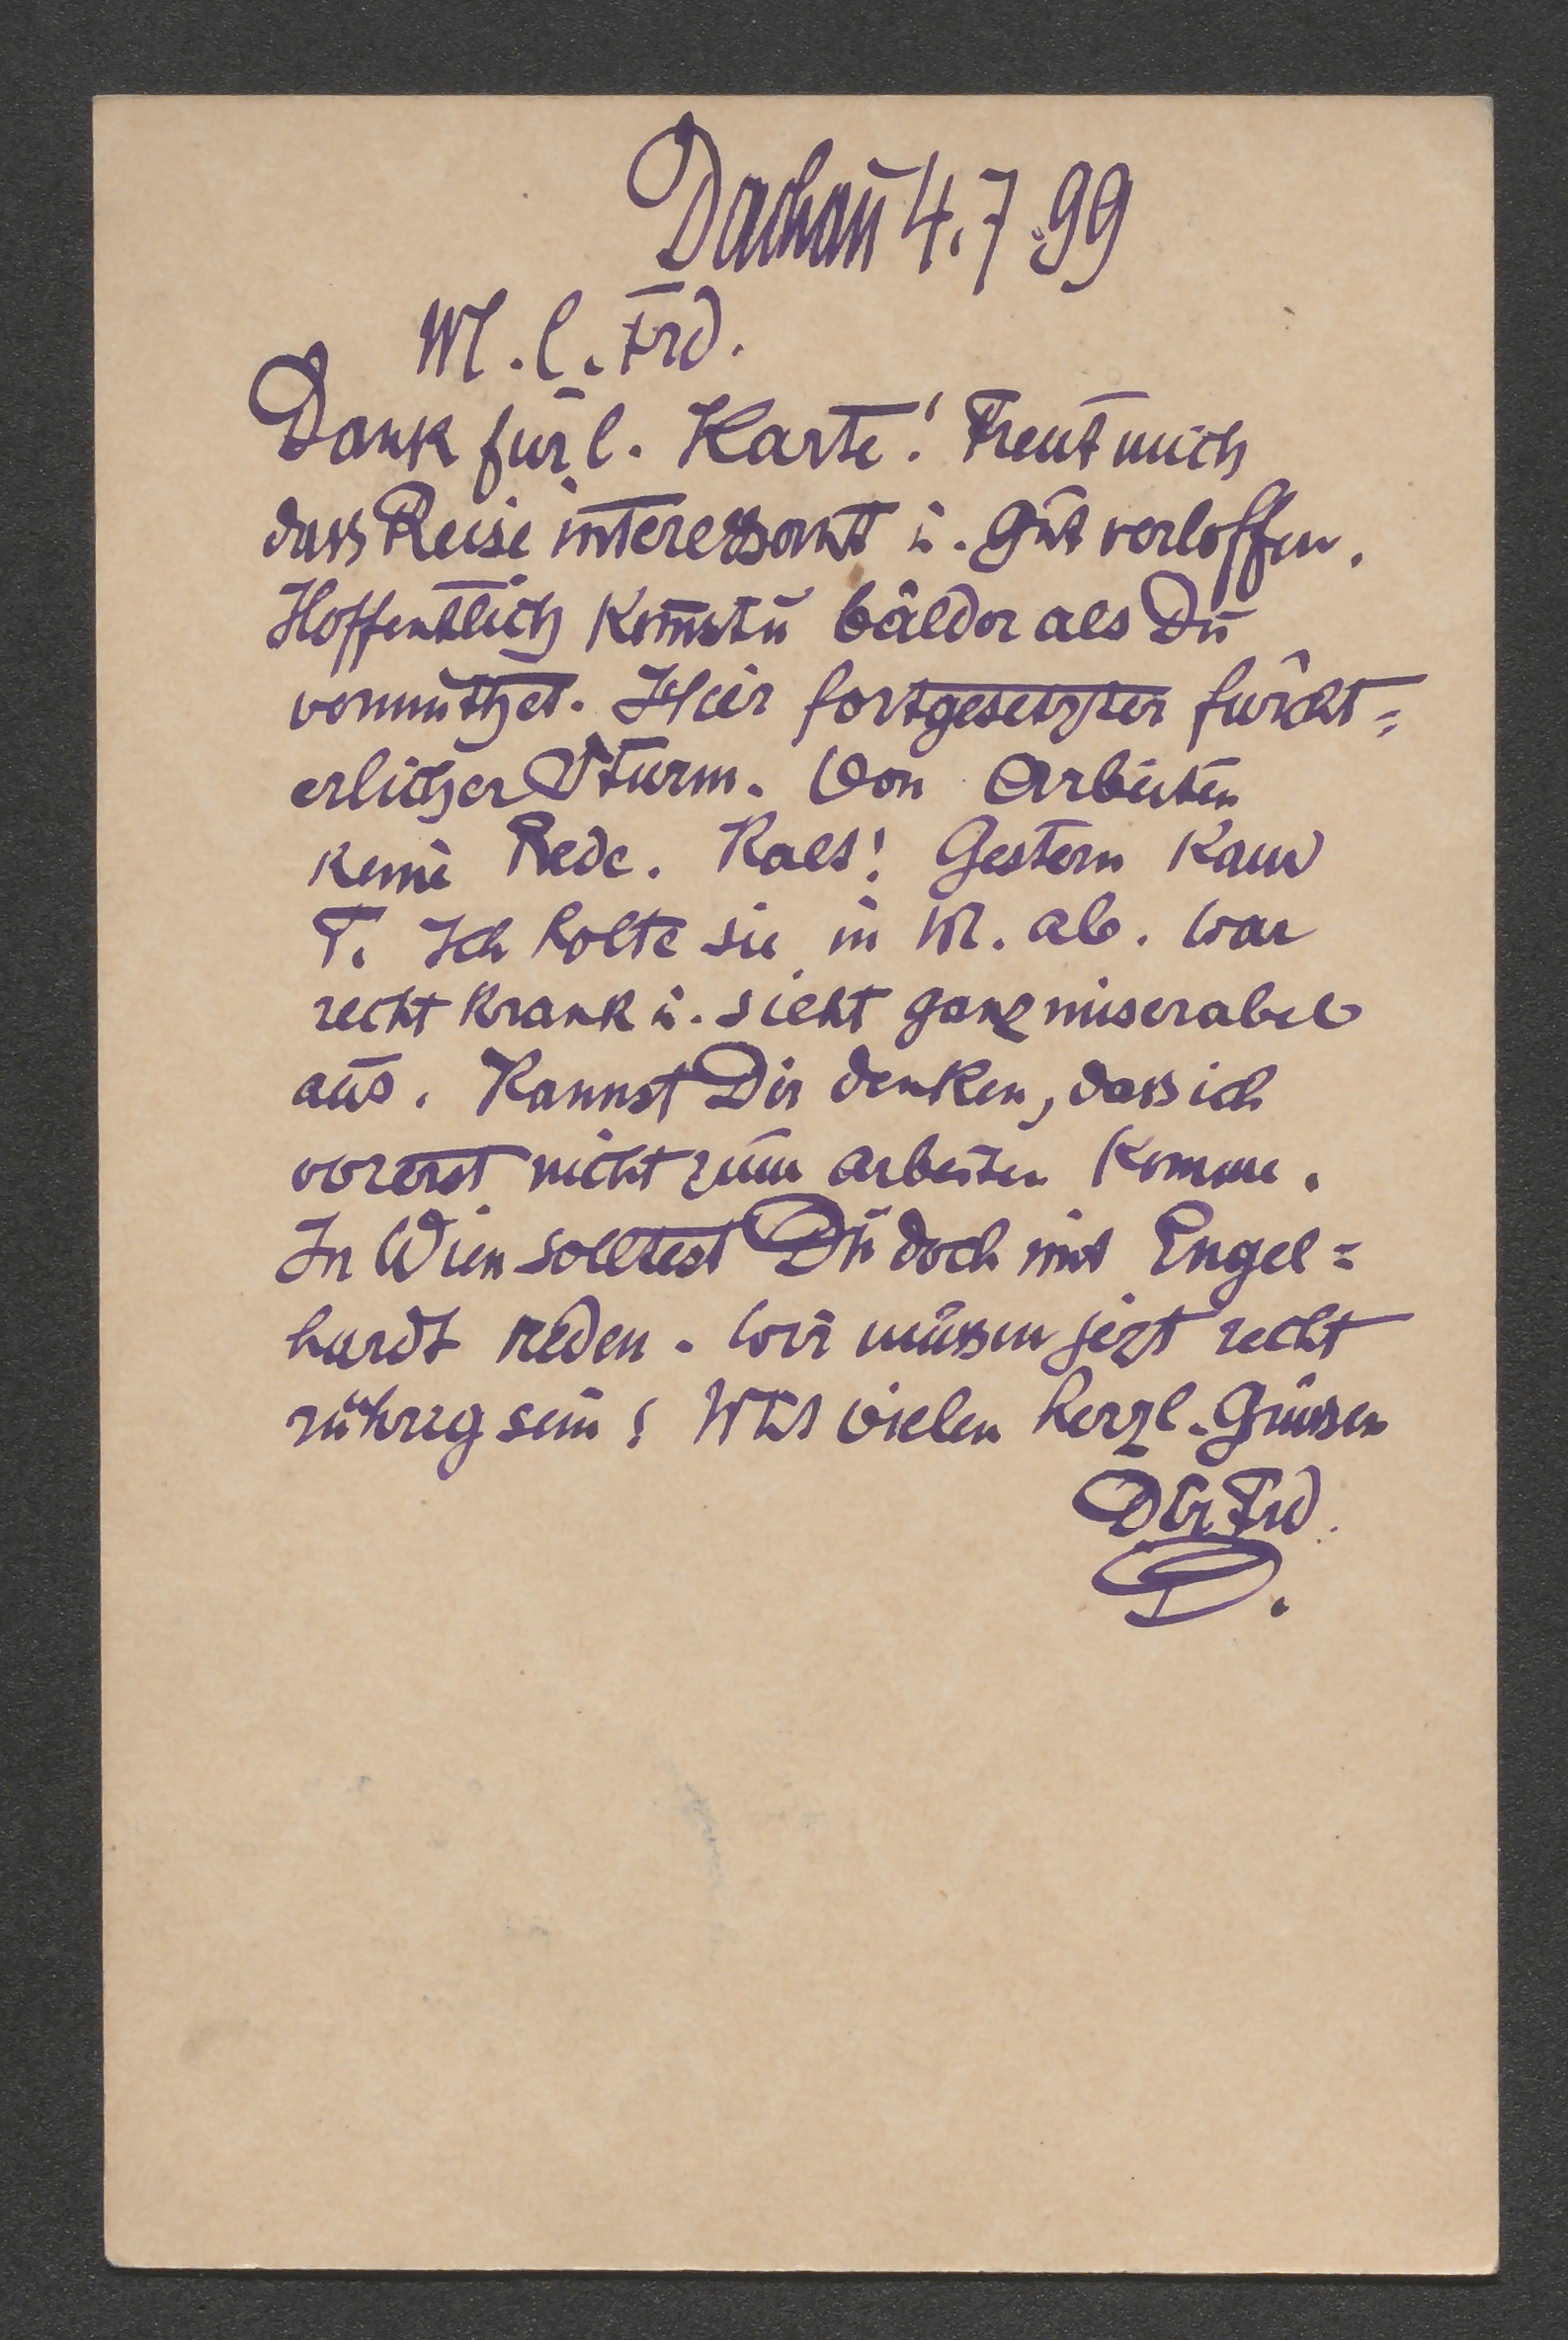 Dachau 4.7.99
M. l. Frd.
Dank für l. Karte! Freut mich
dass Reise interessant u. gut verloffen.
Hoffentlich kommst u bälder als Du
vermuthet. Hier fortgesetzter fürcht=
erlicher Sturm. Von Arbeiten
keine Rede. Kalt! Gestern kam
T. Ich holte sie in M. ab. War
recht krank u. sieht ganz miserabel
aus. Kannst Dir denken, dass ich
vorerst nicht zum arbeiten komme.
In Wien solltest Du doch mit Engel=
hardt reden. Wir müssen jezt recht
rührig sein! Mit vielen herzl. Grüssen
Dr. Frd.
D.